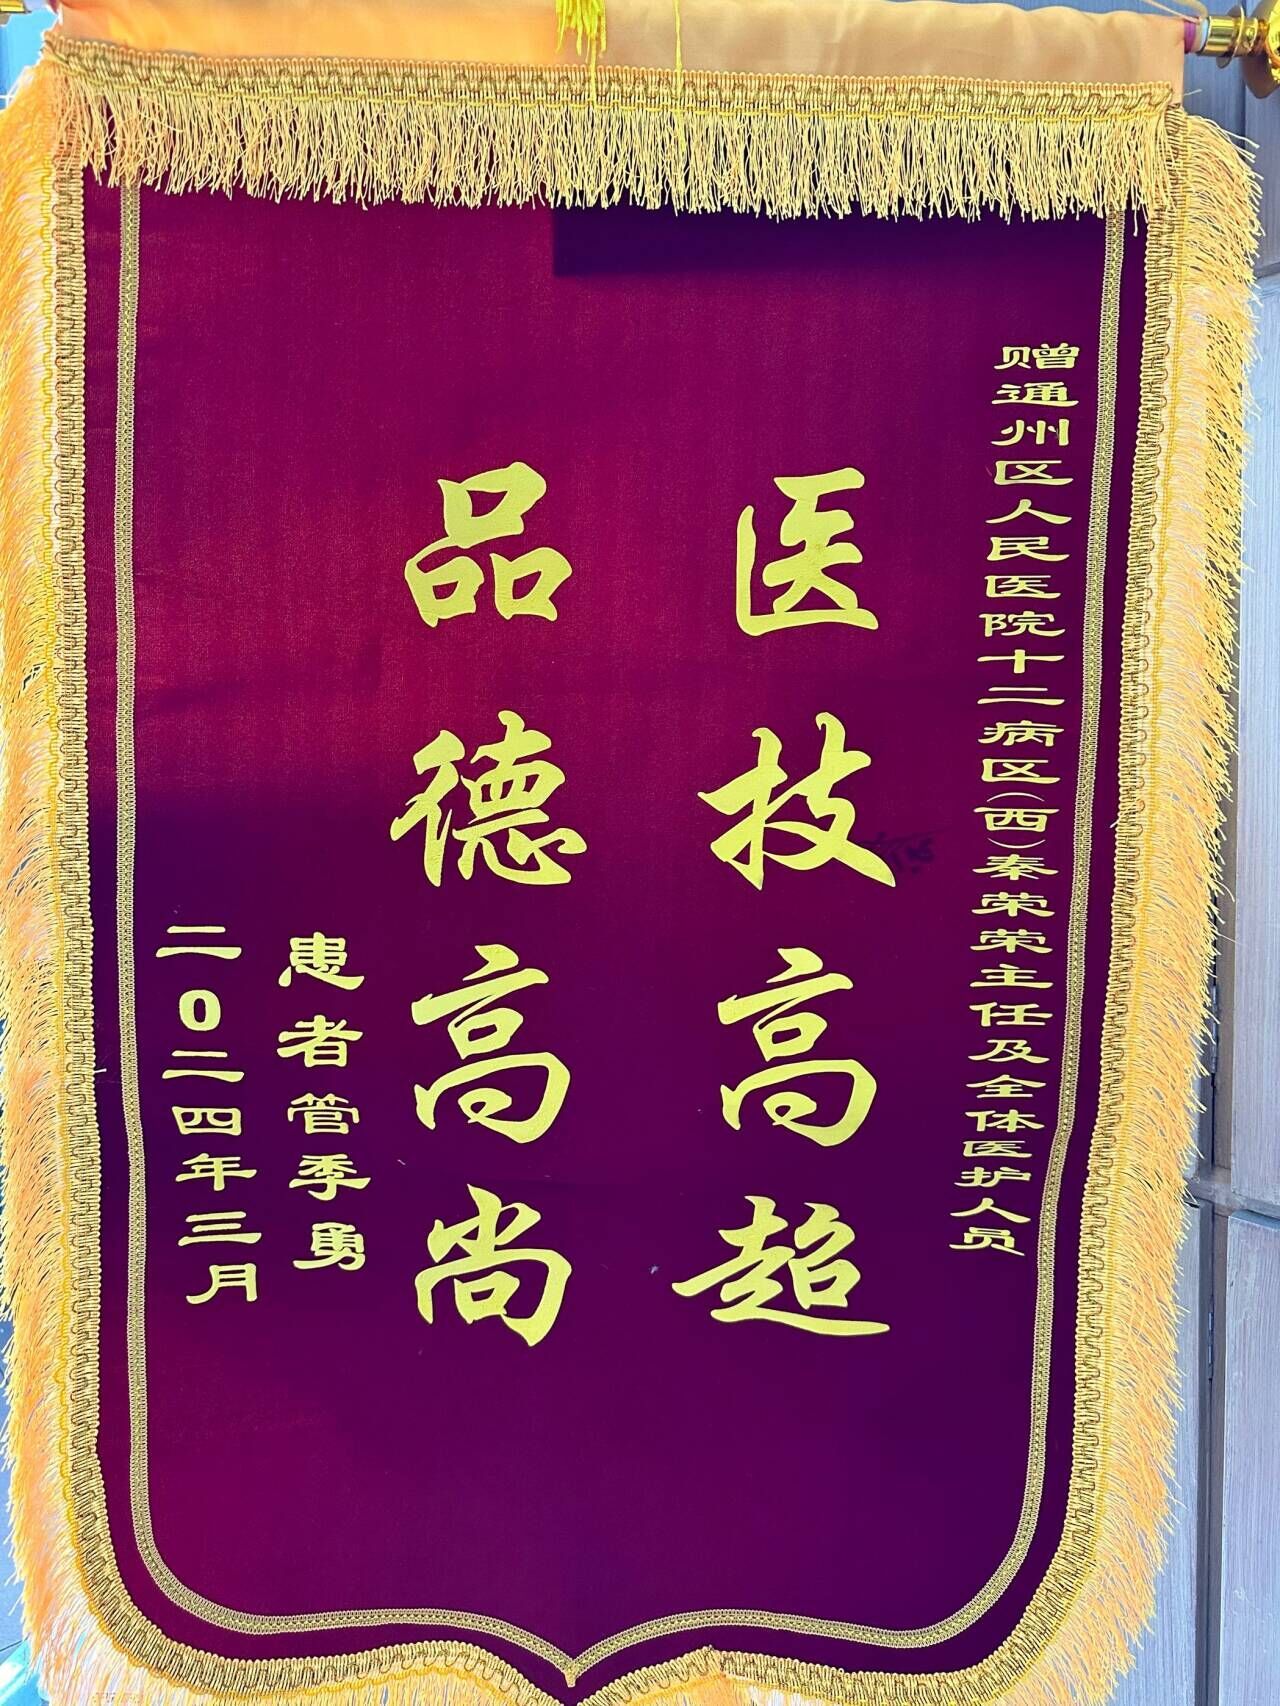 赠通州区人民医院十二病区(西)秦荣荣主任及全体医护人员
医技高超
品德高尚
患者管季勇
二0二四年三月